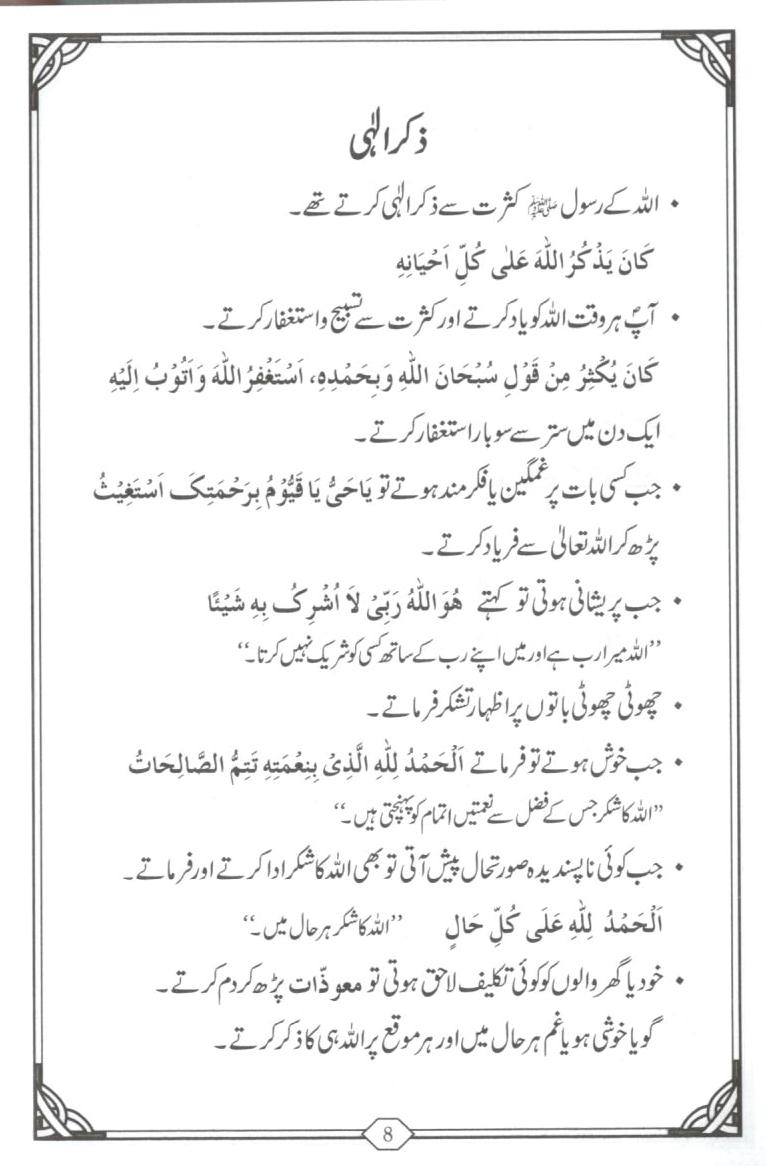 ذکر الٰہی
• اللہ کے رسول ﷺ کثرت سے ذکر الٰہی کرتے تھے۔
كَانَ يَذْكُرُ اللّٰهَ عَلٰى كُلِّ اَحْيَانِهِ
• آپؐ ہر وقت اللہ کو یاد کرتے اور کثرت سے تسبیح و استغفار کرتے۔
كَانَ يُكْثِرُ مِنْ قَوْلِ سُبْحَانَ اللّٰهِ وَبِحَمْدِهِ، اَسْتَغْفِرُ اللّٰهَ وَاَتُوْبُ اِلَيْهِ
ایک دن میں ستر سے سو بار استغفار کرتے۔
• جب کسی بات پر غمگین یا فکر مند ہوتے تو يَا حَىُّ يَا قَيُّوْمُ بِرَحْمَتِكَ اَسْتَغِيْثُ
پڑھ کر اللہ تعالیٰ سے فریاد کرتے۔
• جب پریشانی ہوتی تو کہتے هُوَ اللّٰهُ رَبِّىْ لاَ اُشْرِكُ بِهِ شَيْئًا
”اللہ میرا رب ہے اور میں اپنے رب کے ساتھ کسی کو شریک نہیں کرتا۔“
• چھوٹی چھوٹی باتوں پر اظہار تشکر فرماتے۔
• جب خوش ہوتے تو فرماتے اَلْحَمْدُ لِلّٰهِ الَّذِىْ بِنِعْمَتِهِ تَتِمُّ الصَّالِحَاتُ
”اللہ کا شکر جس کے فضل سے نعمتیں اتمام کو پہنچتی ہیں۔“
• جب کوئی ناپسندیدہ صورتحال پیش آتی تو بھی اللہ کا شکر ادا کرتے اور فرماتے۔
اَلْحَمْدُ لِلّٰهِ عَلَى كُلِّ حَالٍ ”اللہ کا شکر ہر حال میں۔“
• خود یا گھر والوں کو کوئی تکلیف لاحق ہوتی تو معوذّات پڑھ کر دم کرتے۔
گویا خوشی ہو یا غم ہر حال میں اور ہر موقع پر اللہ ہی کا ذکر کرتے۔
8